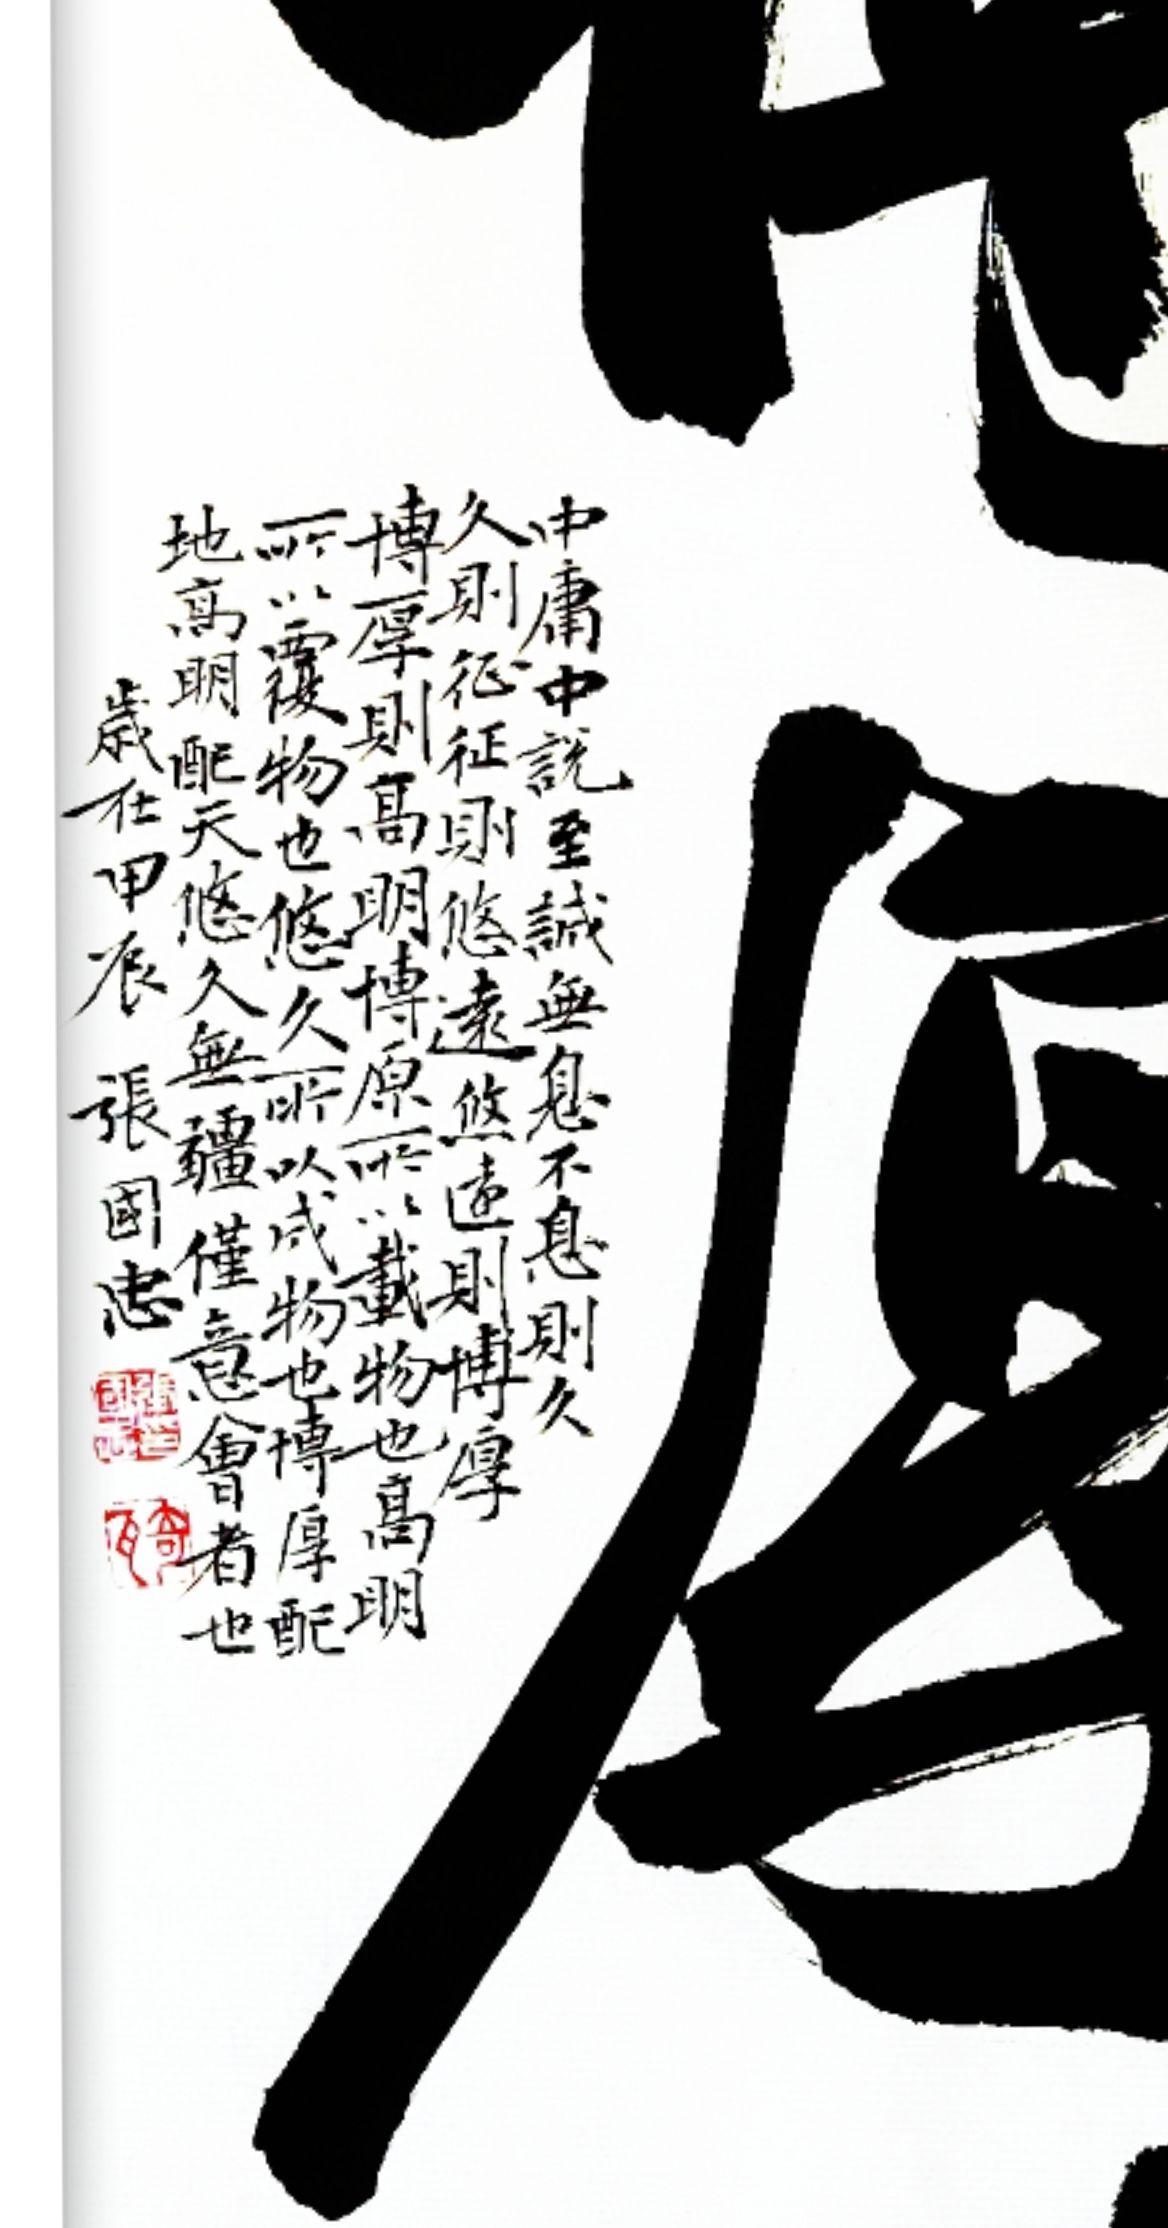 中庸中說至誠無息不息則久
久則征征則悠遠悠遠則博厚
博厚則高明博原所以載物也高明
所以覆物也悠久所以成物也博厚配
地高明配天悠久無疆僅意會者也
歲在甲辰 張國忠